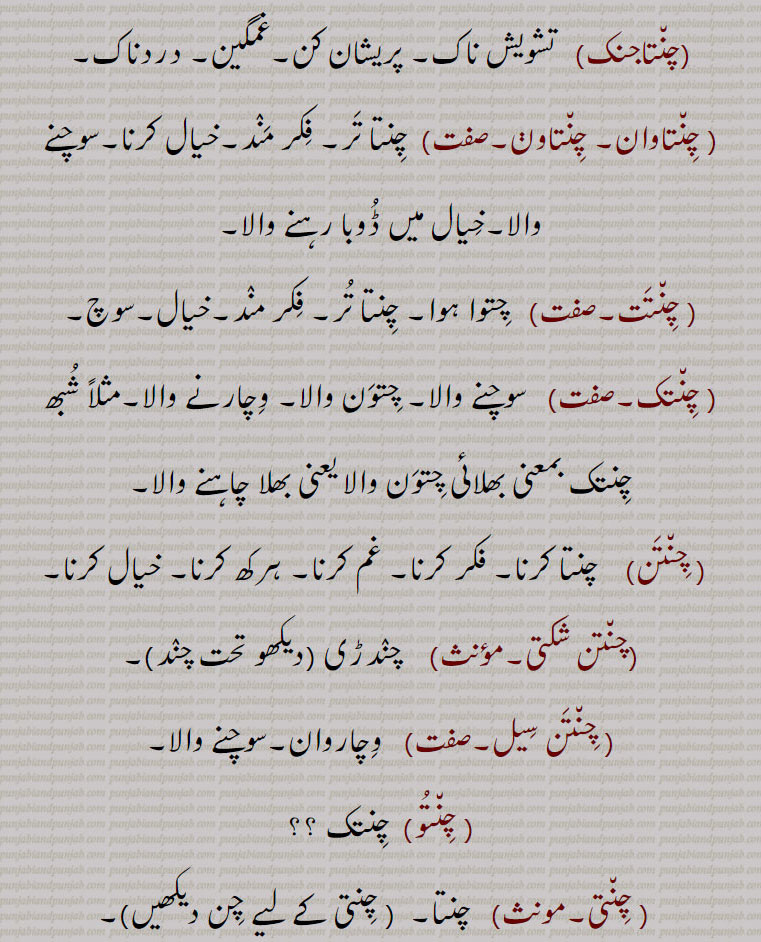 (چِنّتاجنک) تشویش ناک۔ پریشان کن۔غمگین۔ دردناک۔
( چِنّتاوان۔ چِنّتاون۔صفت) چِنتا تَر۔ فِکر مَنْد۔خیال کرنا۔سوچنے
والا۔خِیال میں ڈُوبا رہنے والا۔
( چِنّتَت۔صفت) چِتوا ہوا۔ چِنتا تُر۔ فِکر منْد۔خیال۔سوچ۔
( چِنّتک۔صفت) سوچنے والا۔ چِتوَن والا۔ وِچارنے والا۔مثلاً شُبھ
چِنتک بمعنی بھلائی چِتوَن والا یعنی بھلا چاہنے والا۔
( چِنّتَن) چنتا کرنا۔ فکر کرنا۔ غم کرنا۔ ہرکھ کرنا۔ خیال کرنا۔
(چنّتن شکتی۔مؤنث) چنْدڑی (دیکھو تحت چنْد)۔
( چِنّتَن سِیل۔صفت) وِچاروان۔سوچنے والا۔
( چِنّتُو) چِنتک ؟؟
( چِنّتی۔مونث) چنتا۔ ( چِنتی کے لیے چِن دیکھیں)۔